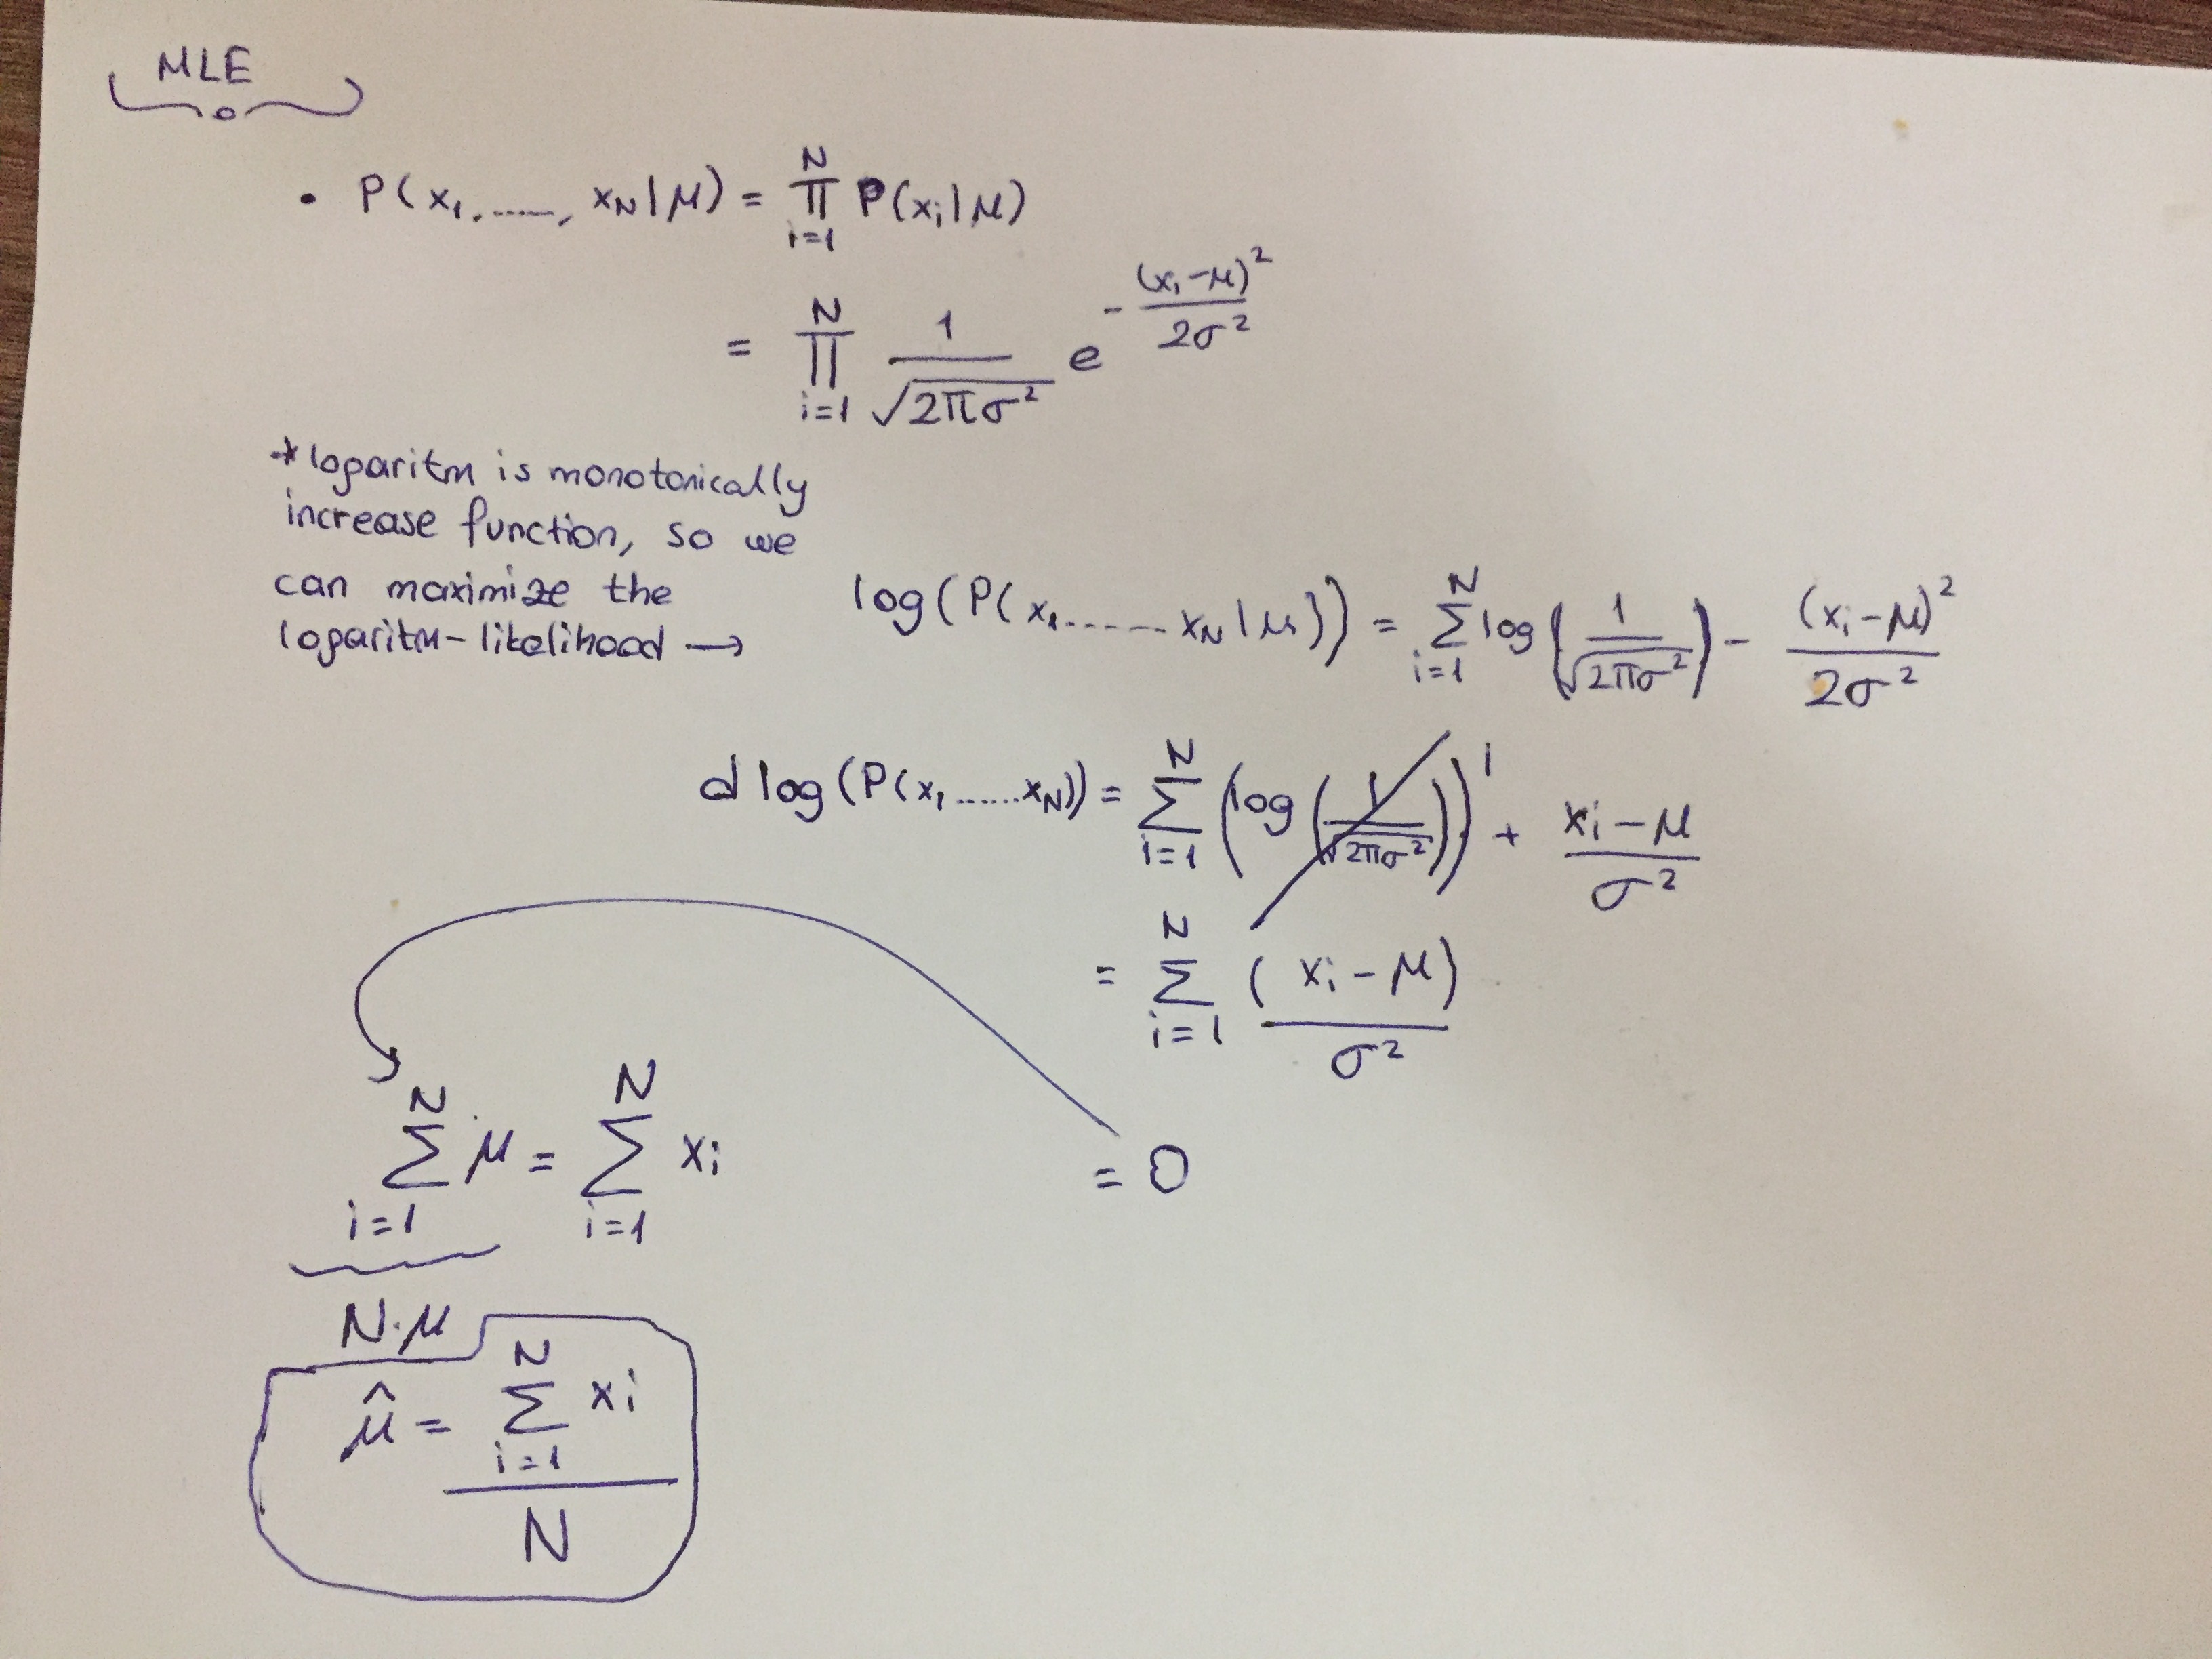 MLE
• P(x₁, ......, x_N | μ) = ∏_{i=1}^{N} P(x_i | μ)
= ∏_{i=1}^{N} 1/√(2πσ²) e^{-(x_i-μ)²/2σ²}
* logaritm is monotonically
increase function, so we
can maximize the
logaritm-likelihood →
log(P(x₁ ...... x_N | μ)) = ∑_{i=1}^{N} log(1/√(2πσ²)) - (x_i-μ)²/2σ²
d log(P(x₁ ...... x_N)) = ∑_{i=1}^{N} (log(1/√(2πσ²)))' + (x_i-μ)/σ²
= ∑_{i=1}^{N} (x_i-μ)/σ²
= 0
∑_{i=1}^{N} μ = ∑_{i=1}^{N} x_i
N.μ
μ̂ = ∑_{i=1}^{N} x_i / N